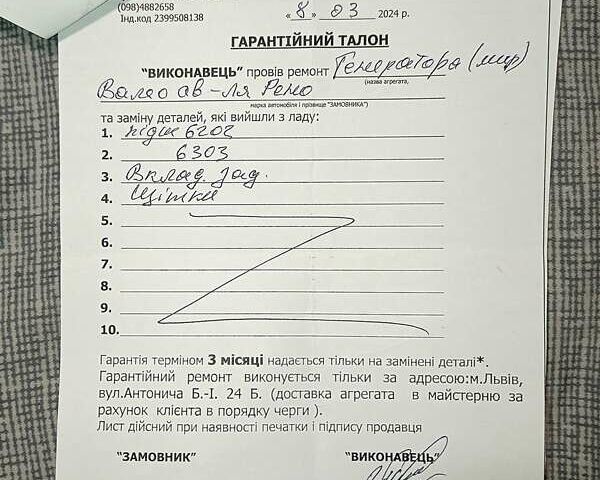 (098)4882658
Інд.код 2399508138
« 8 » 03 2024 р.
ГАРАНТІЙНИЙ ТАЛОН
"ВИКОНАВЕЦЬ" провів ремонт Генератора (мир)
(назва агрегата,
Валео ав-ля Рено
марка автомобіля і прізвище "ЗАМОВНИКА")
та заміну деталей, які вийшли з ладу:
1. підш 6202
2. 6303
3. Вклад. зад.
4. Щітки
5.
6.
7.
8.
9.
10.
Гарантія терміном 3 місяці надається тільки на замінені деталі*.
Гарантійний ремонт виконується тільки за адресою:м.Львів,
вул.Антонича Б.-І. 24 Б. (доставка агрегата в майстерню за
рахунок клієнта в порядку черги ).
Лист дійсний при наявності печатки і підпису продавця
"ЗАМОВНИК" "ВИКОНАВЕЦЬ"